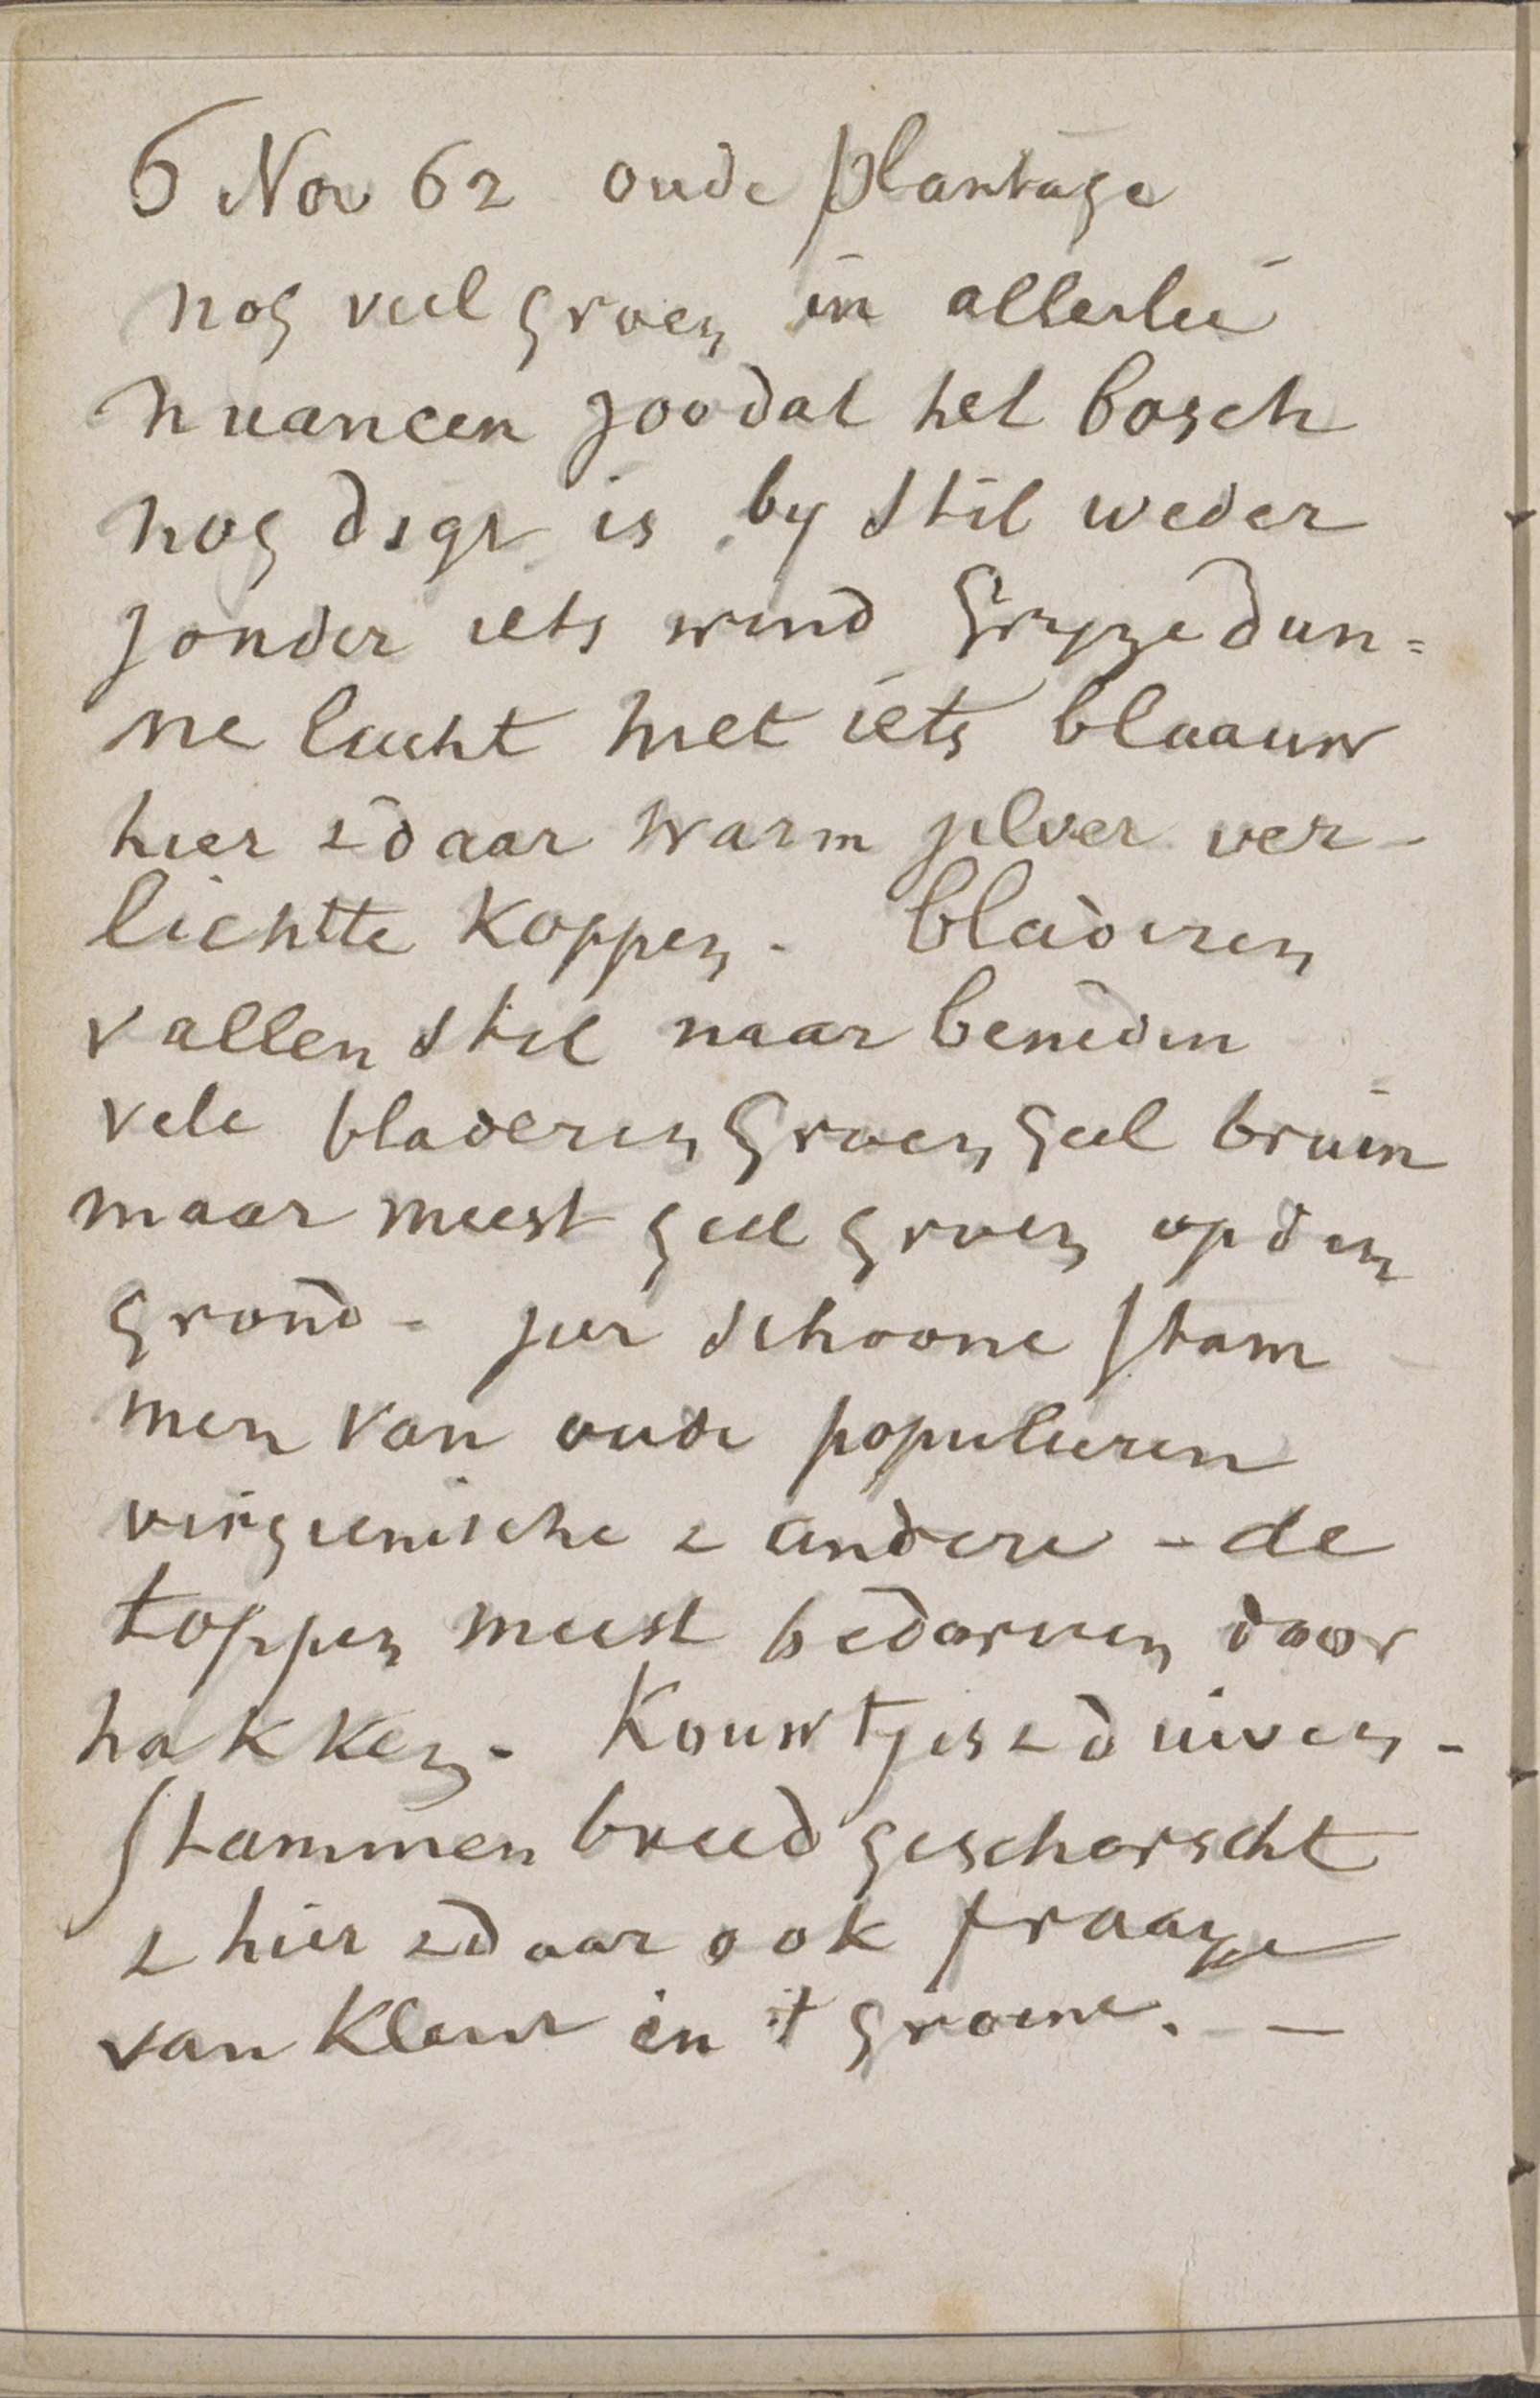 6 Nov 62 oude plantage
nog veel groen in allerlei
nuancen zoodat het bosch
nog digt is by stil weder
zonder iets wind Gryze dun=
ne lucht met iets blaauw
hier & daar warm zilver ver-
lichtte koppen. bladeren
vallen stil naar beneden
vele bladeren groen geel bruin
maar meest geel groen op den
grond - zeer schoone stam
men van oude populieren
virgienische & andere - de
toppen meest bedorven door
hakken. Kouwtjes & duiven -
stammen breed geschorscht
& hier & daar ook fraaye
van kleur in 't groene. —